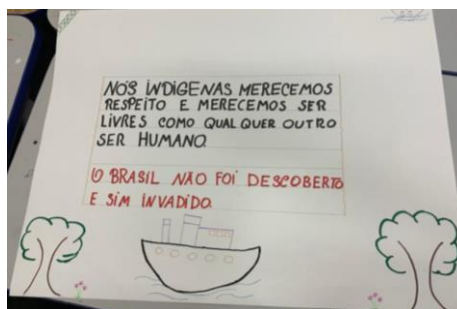 NÓS INDIGENAS MERECEMOS
RESPEITO E MERECEMOS SER
LIVRES COMO QUALQUER OUTRO
SER HUMANO.
O BRASIL NÃO FOI DESCOBERTO
E SIM INVADIDO.